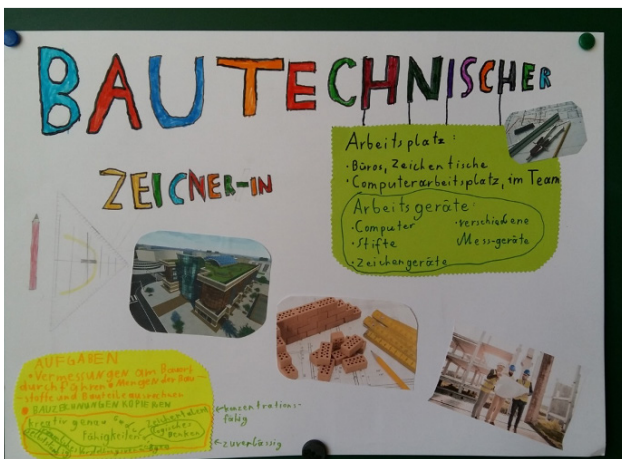 BAUTECHNISCHER
ZEICNER-IN
Arbeitsplatz:
·Büros, Zeichentische
·Computerarbeitsplatz, im Team
Arbeitsgeräte:
·Computer
·verschiedene
·Stifte
Mess-geräte
·Zeichengeräte
AUFGABEN
·Vermessungen am Bauort
durchführen · Mengen der Bau-
stoffe und Bauteile ausrechnen
BAUZEICHNUNGEN KOPIEREN
kreativ genau
Zeichentalent
Fähigkeiten
logisches
Denken
konzentrations-
fähig
zuverlässig